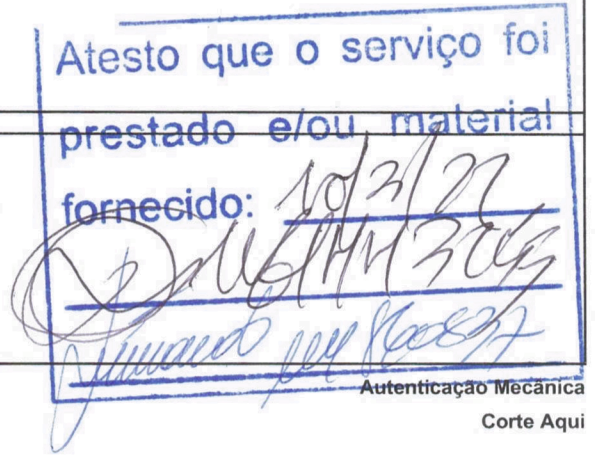 Atesto que o serviço foi
prestado e/ou material
fornecido: 10/2/22
860837
Autenticação Mecânica
Corte Aqui